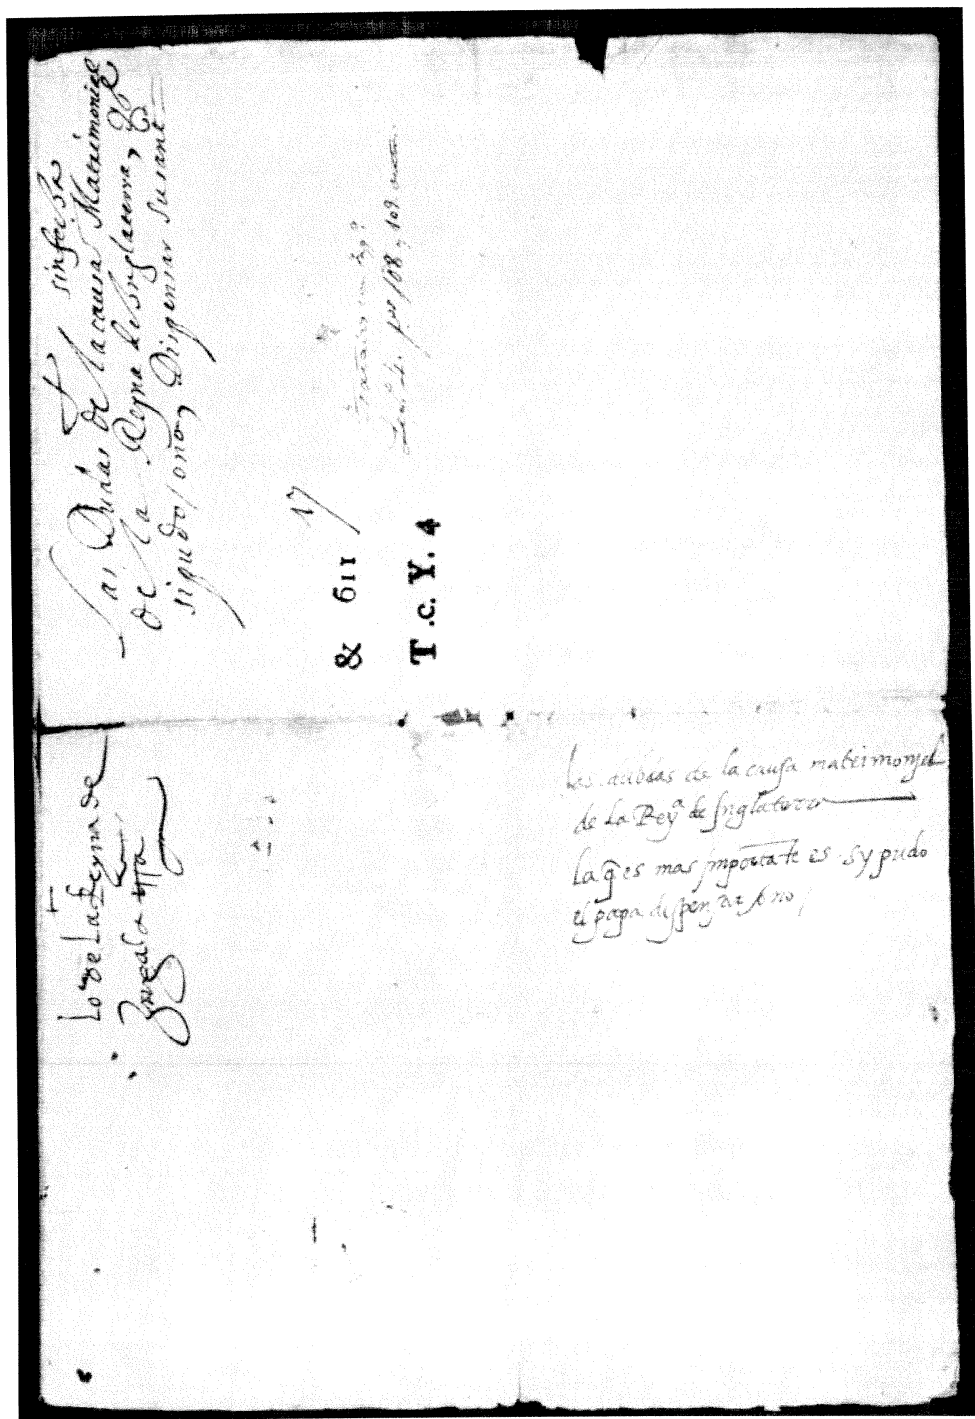 † sin fecha
Las Dudas de la causa Matrimonial
de la Reyna de Inglaterra, Y Se
si pudo, o no, Dispensar Su Sant
17
& 611
T.c. Y. 4
pue 108 y 109
†
Lo de La Reyna de
Las dubdas de la causa matrimonial
de La Reyª de Inglaterra
La q̃ es mas importāte es sy pudo
el papa dispenzar o no